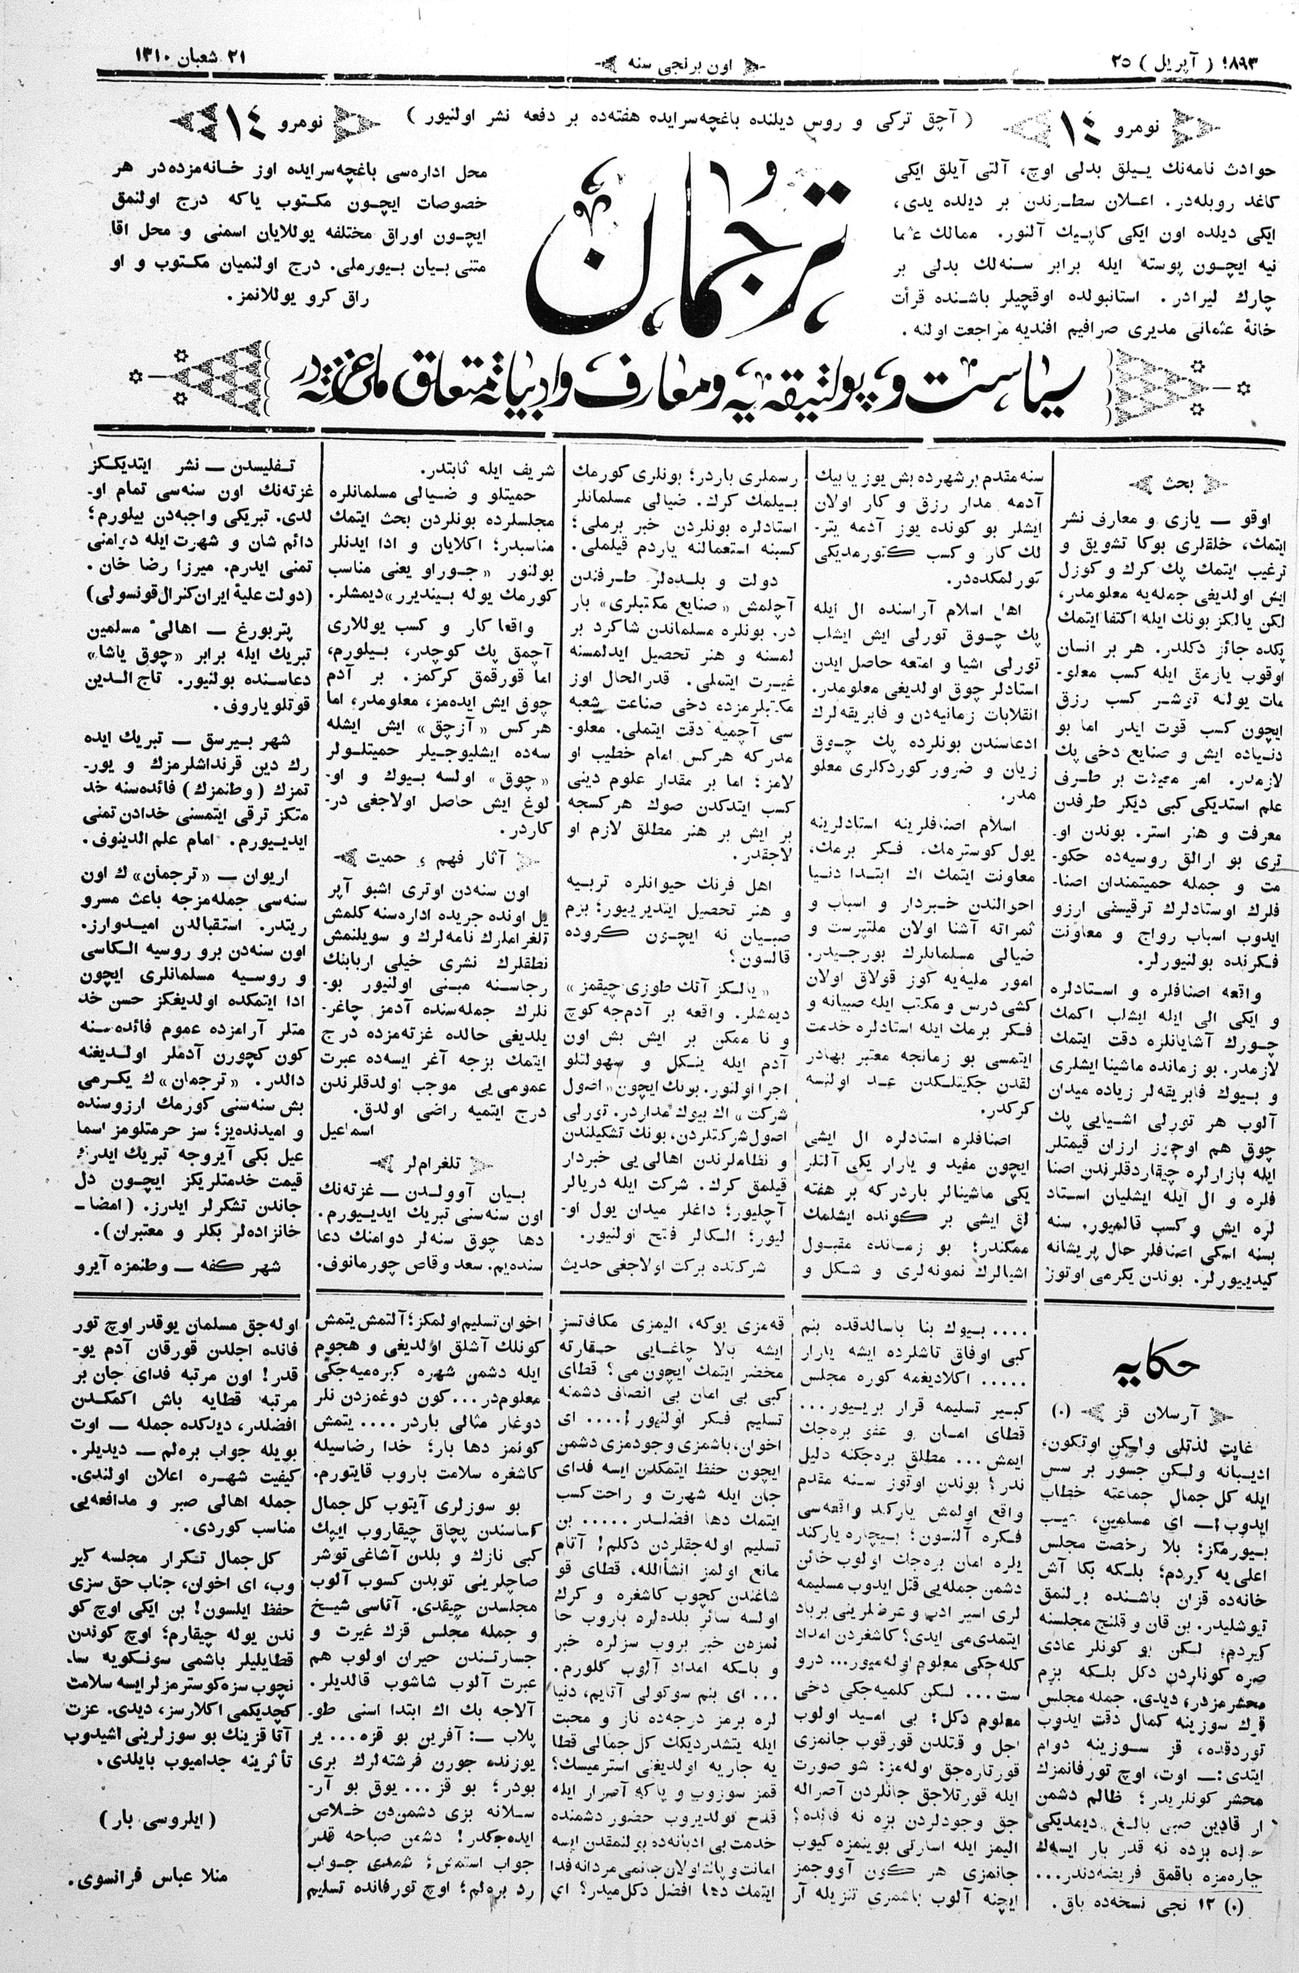 ١٨٩٣ ( آپریل ) ٢٥
اون برنجی سنه
٢١ شعبان ١٣١٠
نومرو ١٤
( آچق ترکی و روس دیلنده باغچه‌سرایده هفته‌ده بر دفعه نشر اولنیور )
نومرو ١٤
حوادث نامه‌نك ییلق بدلی اوچ، آلتی آیلق ایکی
کاغد روبله‌در. اعلان سطرندن بر دیلده یدی،
ایکی دیلده اون ایکی کاپیك آلنور. ممالك عثما
نیه ایچون پوسته ایله برابر سنه‌لك بدلی بر
چارك لیرادر. استانبولده اوقچیلر باشنده قرأت
خانۀ عثمانی مدیری صرافیم افندیه مراجعت اولنه.
ترجمان
محل اداره‌سی باغچه‌سرایده اوز خانه‌مزده‌در هر
خصوصات ایچون مکتوب یاکه درج اولنمق
ایچون اوراق مختلفه یوللایان اسمنی و محل اقا
متنی بیان بیورملی. درج اولنمیان مکتوب و او
راق کرو یوللانمز.
سیاست و پولتیقه‌یه و معارف و ادبیاته متعلق ملی غزته‌در
بحث
اوقو — یازی و معارف نشر
ایتمك، خلقلری بوکا تشویق و
ترغیب ایتمك پك کرك و کوزل
ایش اولدیغی جمله‌یه معلومدر،
لکن یالکز بونك ایله اکتفا ایتمك
پکده جائز دکلدر. هر بر انسان
اوقوب یازمق ایله کسب معلو-
مات یولنه توشر کسب رزق
ایچون کسب قوت ایدر اما بو
دنیاده ایش و صنایع دخی پك
لازمدر. امر معیشت بر طرفی
علم استدیکی کبی دیکر طرفدن
معرفت و هنر استر. بوندن او-
تری بو ارالق روسیه‌ده حکو-
مت و جمله حمیتمندان اصنا-
فلرك اوستادلرك ترقیسنی ارزو
ایدوب اسباب رواج و معاونت
فکرنده بولنیورلر.
واقعه اصنافلره و استادلره
و ایکی الی ایله ایشلب اکمك
چورك آشایانلره دقت ایتمك
لازمدر. بو زمانده ماشینا ایشلری
و بیوك فابریقه‌لر زیاده میدان
آلوب هر تورلی اشیایی پك
چوق هم اوجوز ارزان قیمتلر
ایله بازارلره چیقاردقلرندن اصنا
فلره و ال ایله ایشلیان استاد
لره ایش و کسب قالمیور. سنه
بسنه اسکی اصنافلر حال پریشانه
کیدییورلر. بوندن یکرمی اوتوز
سنه مقدم بر شهرده بش یوز یا بیك
آدمه مدار رزق و کار اولان
ایشلر بو کونده یوز آدمه یتر-
لك کار و کسب کتورمدیکی
کورلمکده‌در.
اهل اسلام آراسنده ال ایله
پك چوق تورلی ایش ایشلب
تورلی اشیا و امتعه حاصل ایدن
استادلر چوق اولدیغی معلومدر.
انقلابات زمانیه‌دن و فابریقه‌لرك
ادعاسندن بونلرده پك چوق
زیان و ضرور کوردکلری معلو
مدر.
اسلام اصنافلرینه استادلرینه
یول کوسترمك. فکر برمك،
معاونت ایتمك اك ابتدا دنیا
احوالندن خبردار و اسباب و
ثمراته آشنا اولان ملتپرست و
ضیالی مسلمانلرك بورجیدر.
امور ملیه‌یه کوز قولاق اولان
کشی درس و مکتب ایله صبیانه و
فکر برمك ایله استادلره خدمت
ایتمسی بو زمانجه معتبر بهادر
لقدن جکیتلکدن عد اولنسه
کرکدر.
اصنافلره استادلره ال ایشی
ایچون مفید و یارار یکی آلتلر
یکی ماشینالر باردرکه بر هفته
لق ایشی بر کونده ایشلمك
ممکندر؛ بو زمانده مقبول
اشیالرك نمونه‌لری و شکل و
رسملری باردر؛ بونلری کورمك
بیلمك کرك. ضیالی مسلمانلر
استادلره بونلردن خبر برملی؛
کسبنه استعمالنه یاردم قیلملی.
دولت و بلده‌لر طرفندن
آچلمش «صنایع مکتبلری» بار
در. بونلره مسلماندن شاکرد بر
لمسنه و هنر تحصیل ایدلمسنه
غیرت ایتملی. قدرالحال اوز
مکتبلرمزده دخی صناعت شعبه
سی آچمیه دقت ایتملی. معلو-
مدرکه هرکس امام خطیب او
لامز؛ اما بر مقدار علوم دینی
کسب ایتدکدن صوك هر کسجه
بر ایش بر هنر مطلق لازم او
لاجقدر.
اهل فرنك حیوانلره تربیه
و هنر تحصیل ایتدیرییور؛ بزم
صبیان نه ایچون کروده
قالسون؟
«یالکز آتك طوزی چیقمز»
دیمشلر. واقعه بر آدمجه کوچ
و نا ممکن بر ایش بش اون
آدم ایله ینکل و سهولتلو
اجرا اولنور. بونك ایچون «اصول
شرکت» اك بیوك مداردر. تورلی
اصول شرکتلردن، بونك تشکیلندن
و نظاملرندن اهالی‌یی خبردار
قیلمق کرك. شرکت ایله دریالر
آچلیور؛ داغلر میدان یول او-
لیور؛ الکالر فتح اولنیور.
شرکتده برکت اولاجغی حدیث
شریف ایله ثابتدر.
حمیتلو و ضیالی مسلمانلره
مجلسلرده بونلردن بحث ایتمك
مناسبدر؛ اکلایان و ادا ایدنلر
بولنور «جوراو یعنی مناسب
کورمك یوله بیندیرر» دیمشلر.
واقعا کار و کسب یوللاری
آچمق پك کوچدر، بیلورم،
اما قورقمق کرکمز. بر آدم
چوق ایش ایده‌مز، معلومدر، اما
هرکس «آزچق» ایش ایشله
سه‌ده ایشلیوجیلر حمیتلولر
«چوق» اولسه بیوك و او-
لوغ ایش حاصل اولاجغی در-
کاردر.
آثار فهم و حمیت
اون سنه‌دن اوتری اشبو آپر
یل اونده جریده اداره‌سنه کلمش
تلغراملرك نامه‌لرك و سویلنمش
نطقلرك نشری خیلی اربابنك
رجاسنه مبنی اولنیور بو-
نلرك جمله‌سنده آدمز چاغر-
یلدیغی حالده غزته‌مزده درج
ایتمك بزجه آغر ایسه‌ده عبرت
عمومی‌یی موجب اولدقلرندن
درج ایتمیه راضی اولدق.
اسماعیل
تلغراملر
بیان آوولدن — غزته‌نك
اون سنه‌سنی تبریك ایدییورم.
دها چوق سنه‌لر دوامنك دعا
سنده‌یم. سعد وقاص چورمانوف.
تفلیسدن — نشر ایتدیککز
غزته‌نك اون سنه‌سی تمام او-
لدی. تبریکی واجبه‌دن بیلورم؛
دائم شان و شهرت ایله درامنی
تمنی ایدرم. میرزا رضا خان.
(دولت علیۀ ایران کنرال قونسولی)
پتربورغ — اهالیٔ مسلمین
تبریك ایله برابر «چوق یاشا»
دعاسنده بولنیور. تاج الدین
قوتلویاروف.
شهر بیرسق — تبریك ایده
رك دین قرنداشلرمزك و یور-
تمزك (وطنمزك) فائده‌سنه خد
متکز ترقی ایتمسنی خدادن تمنی
ایدییورم. امام علم الدینوف.
اریوان — «ترجمان»ك اون
سنه‌سی جمله‌مزجه باعث مسرو
ریتدر. استقبالدن امیدوارز.
اون سنه‌دن برو روسیه الکاسی
و روسیه مسلمانلری ایچون
ادا ایتمکده اولدیغکز حسن خد
متلر آرامزده عموم فائده‌سنه
کون کچورن آدملر اولدیغنه
دالدر. «ترجمان»ك یکرمی
بش سنه‌سنی کورمك ارزوسنده
و امیدنده‌یز؛ سز حرمتلومز اسما
عیل بکی آیروجه تبریك ایدرك
قیمت خدمتلریکز ایچون دل
جاندن تشکرلر ایدرز. (امضا-
خانزاده‌لر بکلر و معتبران).
شهر کفه — وطنمزه آیرو
حکایه
آرسلان قز (٠)
غایت لذتلی ولیکن اوتکون،
ادیبانه ولیکن جسور بر سس
ایله کل جمال جماعته خطاب
ایدوب — ای مسلمین، عیب
بیورمکز؛ بلا رخصت مجلس
اعلی‌یه کیردم؛ بلسکه بکا آش
خانه‌ده قزان باشنده بولنمق
تیوشلیدر. بن قان و قلنج مجلسنه
کیردم؛ لیکن بو کونلر عادی
صره کونلردن دکل بلسکه بزم
محشرمزدر، دیدی. جمله مجلس
قزك سوزینه کمال دقت ایدوب
توردقده، قز سوزینه دوام
ایتدی:— اوت، اوچ تورفانمزك
محشر کونلریدر؛ ظالم دشمن
ار قادین صبی بالغ دیمدیکی
حالده بزده نه قدر بار ایسه‌ك
چاره‌مزه باقمق فریضه‌دندر...
(٠) ١٢ نجی نسخه‌ده باق.
.... بیوك بنا یاسالدقده بنم
کبی اوفاق تاشلرده ایشه یارار
..... اکلادیغمه کوره مجلس
کبیر تسلیمه قرار برییور...
قطای امان و عفو بره‌جك
ایمش... مطلق بره‌جکنه دلیل
ندر؟ بوندن اوتوز سنه مقدم
واقع اولمش یارکند واقعه‌سی
فکره آلنسون؛ بیچاره یارکند
یلره امان بره‌جك اولوب خائن
دشمن جمله‌یی قتل ایدوب مسلمه
لری اسیر ادب و عرضلرینی برباد
ایتمدی‌می ایدی؟ کاشغردن امداد
کله‌جکی معلوم اوله‌میور... درو
ست... لکن کلمیه‌جکی دخی
معلوم دکل؛ بی امید اولوب
اجل و قتلدن قورقوب جانمزی
قورتاره‌جق اوله‌مز؛ شو صورت
ایله قورتلاجق جانلردن آصراله
جق وجودلردن بزه نه فائده؟
الیمز ایله اسارتی بوینمزه کیوب
جانمزی هر کون آووجمز
ایچنه آلوب باشمزی تنزیله آر
قه‌مزی یوکه، الیمزی مکافاتسز
ایشه بالا چاغایی حقارته
محضر ایتمك ایچون می؟ قطای
کبی بی امان بی انصاف دشمنه
تسلیم فکر اولنیور!.... ای
اخوان، باشمزی وجودمزی دشمن
ایچون حفظ ایتمکدن ایسه فدای
جان ایله شهرت و راحت کسب
ایتمك دها افضلدر..... بن
تسلیم اوله‌جقلردن دکلم! آنام
مانع اولمز انشأالله، قطای قو
شاغندن کچوب کاشغره و کرك
اولسه سائر بلده‌لره باروب حا
لمزدن خبر بروب سزلره خبر
و بلسکه امداد آلوب کلورم.
... ای بنم سوکولی آتایم، دنیا
لره برمز درجه‌ده ناز و محبت
ایله یتشدردیکك کل جمالی قطا
یه جاریه اولدیغنی استرمیسك؟
قمز سوزوب و پاکه آصرار ایله
قدح تولدیروب حضور دشمنده
خدمت بی ادبانه‌ده بولنمقدن ایسه
امانت و پاك اولان جانمی مردانه فدا
ایتمك دها افضل دکلمیدر؟ ای
اخوان تسلیم اولمکز؛ آلتمش یتمش
کونلك آشلق اولدیغی و هجوم
ایله دشمن شهره کیره‌میه‌جکی
معلومدر... کون دوغه‌زدن نلر
دوغار مثالی باردر.... یتمش
کونمز دها بار؛ خدا رضاسیله
کاشغره سلامت باروب قایتورم.
بو سوزلری آیتوب کل جمال
کساسندن پچاق چیقاروب ایپك
کبی نازك و بلدن آشاغی توشر
صاچلرینی توبدن کسوب آلوب
مجلسدن چیقدی. آتاسی شیخ
و جمله مجلس قزك غیرت و
جسارتندن حیران اولوب هم
عبرت آلوب شاشوب قالدیلر.
آلاجه بك اك ابتدا اسنی طو-
پلاب —: آفرین بو قزه... یر
یوزنده جورن فرشته‌لرك بری
بودر؛ بو قز... یوق بو آر-
سلانه بزی دشمن‌دن خلاص
ایده‌جکدر! دشمن صباحه قدر
جواب استمش؛ شمدی جواب
رد بره‌لم؛ اوچ تورفانده تسلیم
اوله‌جق مسلمان یوقدر اوچ تور
فانده اجلدن قورقان آدم یو-
قدر! اون مرتبه فدای جان بر
مرتبه قطایه باش اکمکدن
افضلدر، دیدکده جمله — اوت
بویله جواب بره‌لم — دیدیلر.
کیفیت شهره اعلان اولندی.
جمله اهالی صبر و مدافعه‌یی
مناسب کوردی.
کل جمال تکرار مجلسه کیر
وب، ای اخوان، جناب حق سزی
حفظ ایلسون! بن ایکی اوچ کو
ندن یوله چیقارم؛ اوچ کوندن
قطایلیلر باشمی سونکویه سا-
نچوب سزه کوسترمزلر ایسه سلامت
کچدیکمی اکلارسز، دیدی. عزت
آقا قزینك بو سوزلرینی اشیدوب
تأثرینه جدامیوب بایلدی.
(ایلروسی بار)
منلا عباس فرانسوی.